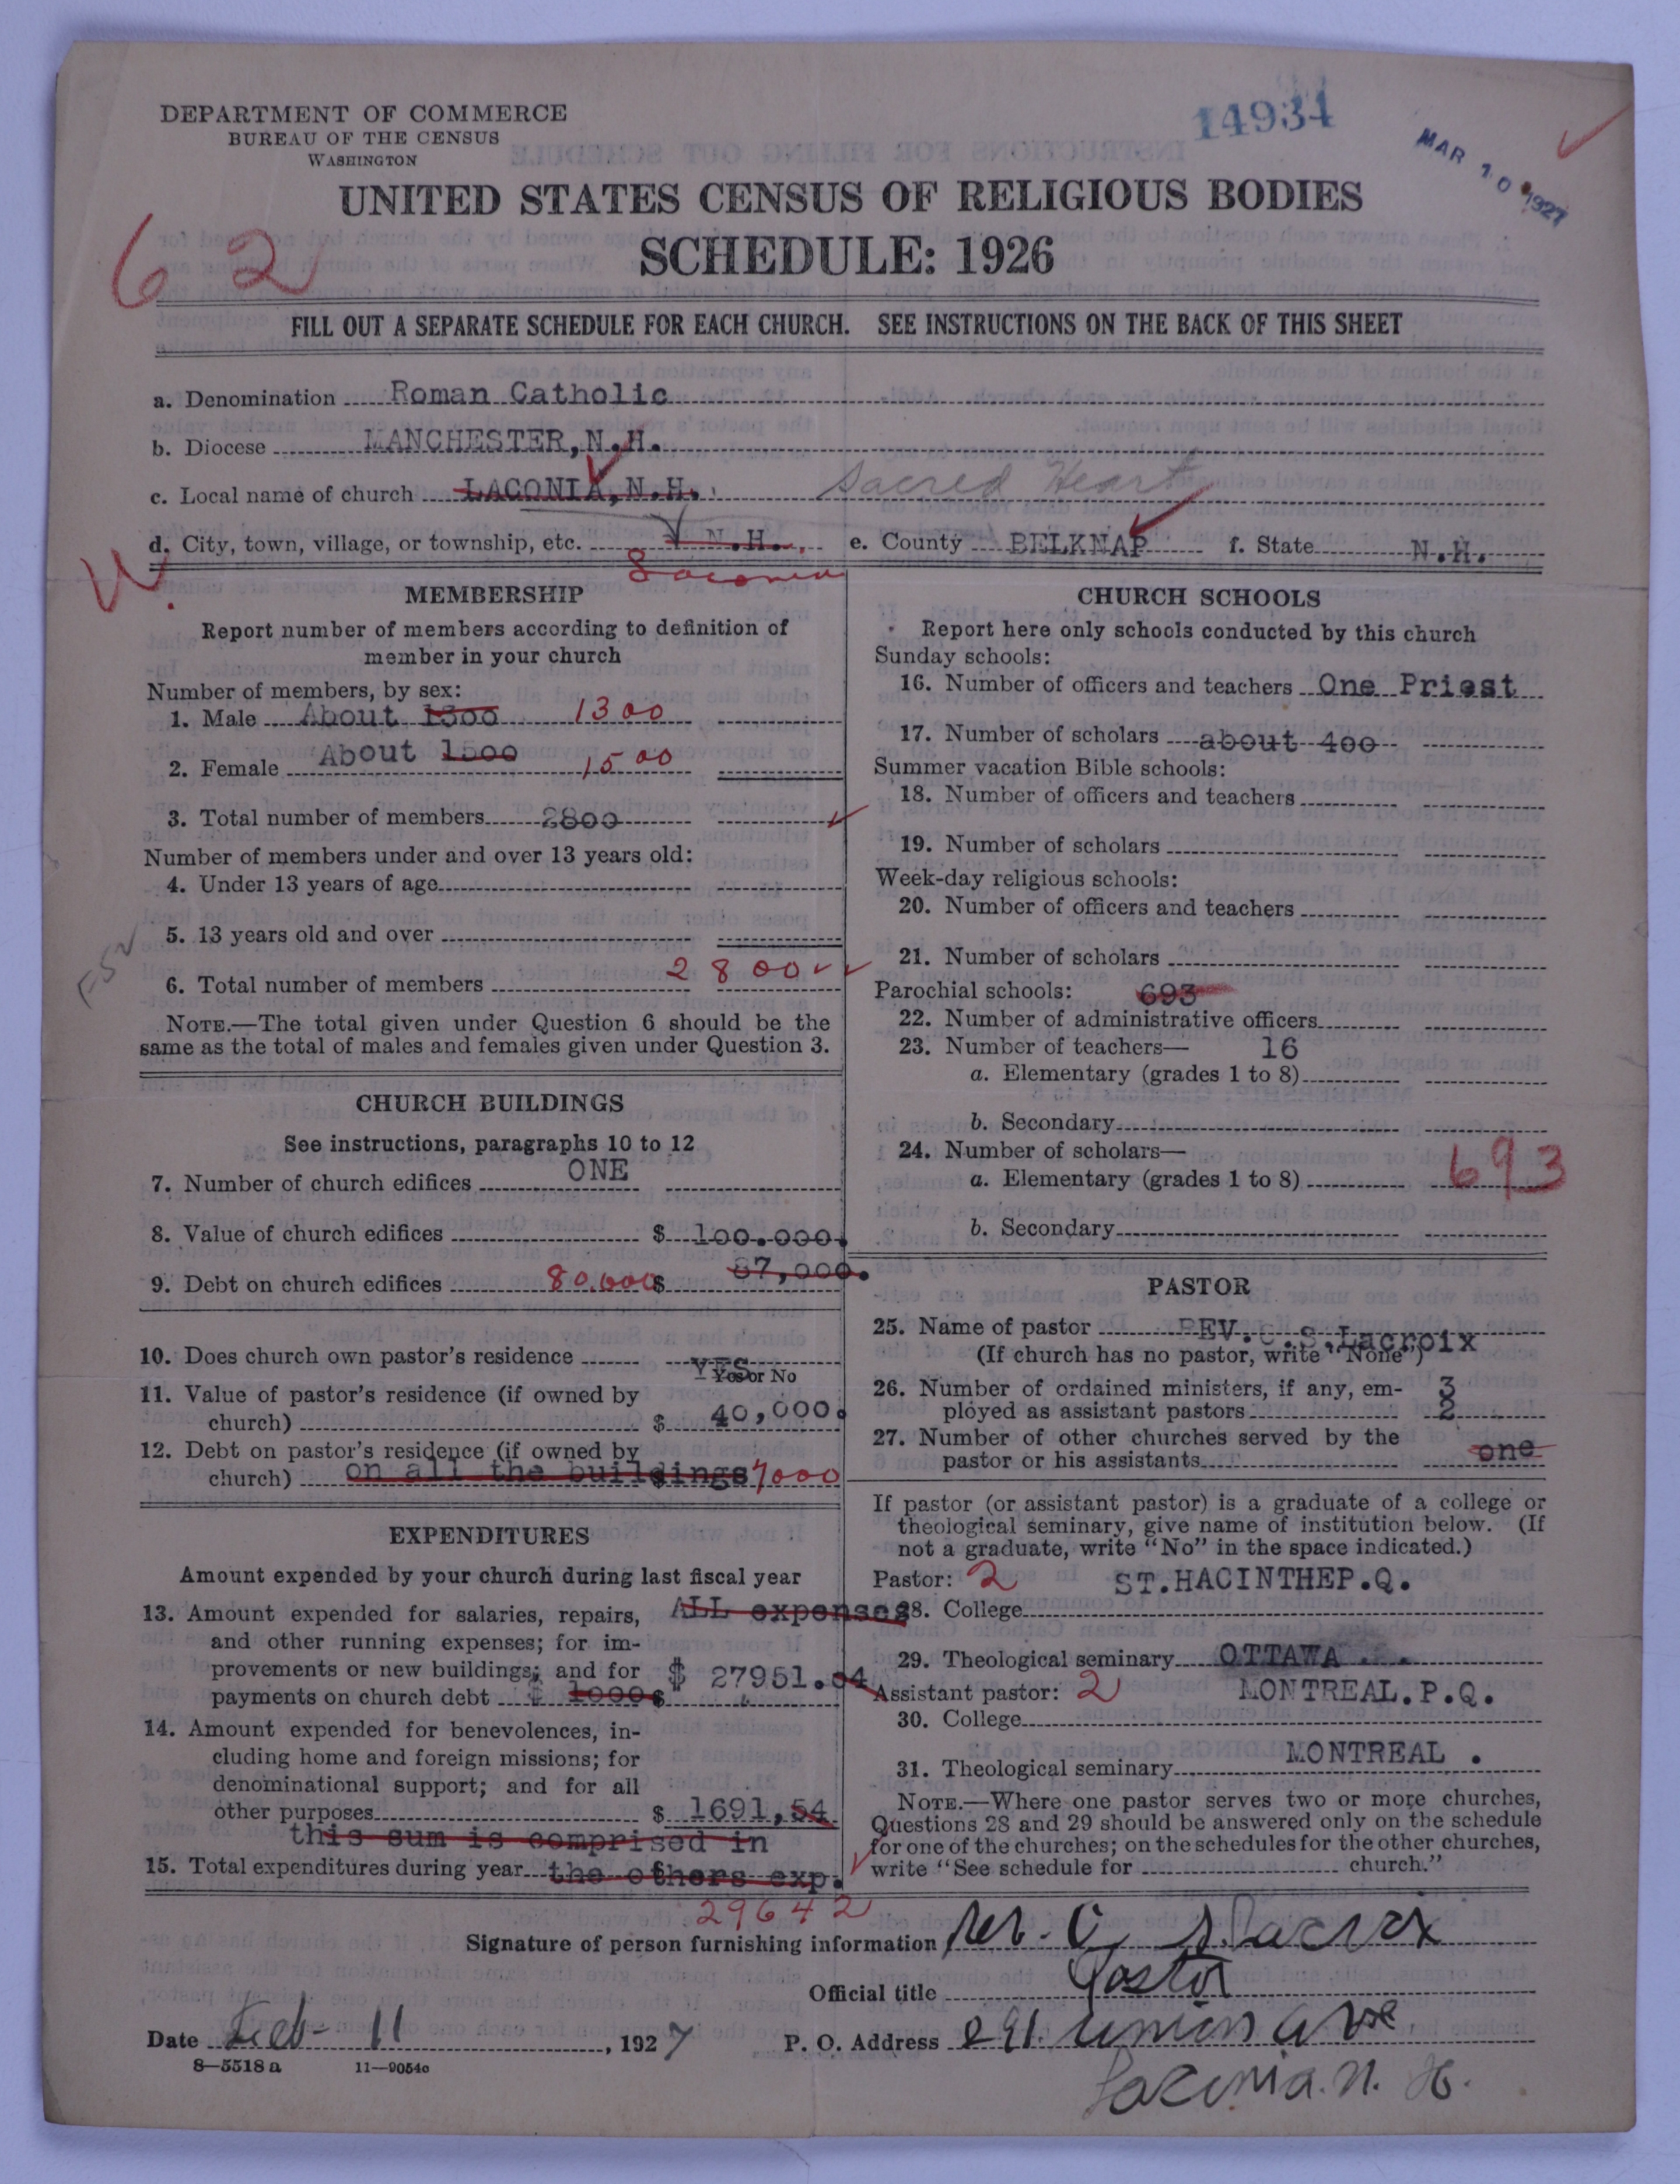 14934
MAR 10 1927
DEPARTMENT OF COMMERCE
BUREAU OF THE CENSUS
WASHINGTON
UNITED STATES CENSUS OF RELIGIOUS BODIES
SCHEDULE: 1926
62
FILL OUT A SEPARATE SCHEDULE FOR EACH CHURCH. SEE INSTRUCTIONS ON THE BACK OF THIS SHEET
a. Denomination Roman Catholic
b. Diocese MANCHESTER, N.H.
c. Local name of church LACONIA, N.H. Sacred Heart
d. City, town, village, or township, etc. N.H. e. County BELKNAP f. State N.H.
Laconia
MEMBERSHIP
Report number of members according to definition of
member in your church
Number of members, by sex:
1. Male About 1300 1300
2. Female About 1500 1500
3. Total number of members 2800
Number of members under and over 13 years old:
4. Under 13 years of age
5. 13 years old and over
6. Total number of members 2800
NOTE.—The total given under Question 6 should be the
same as the total of males and females given under Question 3.
CHURCH BUILDINGS
See instructions, paragraphs 10 to 12
7. Number of church edifices ONE
8. Value of church edifices $ 100.000.
9. Debt on church edifices 80.000 $ 87,000.
10. Does church own pastor's residence YES
Yes or No
11. Value of pastor's residence (if owned by
church) $ 40,000.
12. Debt on pastor's residence (if owned by
church) on all the buildings $ 7000
EXPENDITURES
Amount expended by your church during last fiscal year
13. Amount expended for salaries, repairs, ALL expenses
and other running expenses; for im-
provements or new buildings; and for $ 27951.04
payments on church debt $ 1000 $
14. Amount expended for benevolences, in-
cluding home and foreign missions; for
denominational support; and for all
other purposes $ 1691,54
this sum is comprised in
15. Total expenditures during year the others exp.
29642
CHURCH SCHOOLS
Report here only schools conducted by this church
Sunday schools:
16. Number of officers and teachers One Priest
17. Number of scholars about 400
Summer vacation Bible schools:
18. Number of officers and teachers
19. Number of scholars
Week-day religious schools:
20. Number of officers and teachers
21. Number of scholars
Parochial schools: 693
22. Number of administrative officers
23. Number of teachers— 16
a. Elementary (grades 1 to 8)
b. Secondary
24. Number of scholars—
a. Elementary (grades 1 to 8) 693
b. Secondary
PASTOR
25. Name of pastor REV. C.S.Lacroix
(If church has no pastor, write "None")
26. Number of ordained ministers, if any, em- 3
ployed as assistant pastors 2
27. Number of other churches served by the
pastor or his assistants one
If pastor (or assistant pastor) is a graduate of a college or
theological seminary, give name of institution below. (If
not a graduate, write "No" in the space indicated.)
Pastor: 2 ST.HACINTHEP.Q.
28. College
29. Theological seminary OTTAWA
Assistant pastor: 2 MONTREAL.P.Q.
30. College
31. Theological seminary MONTREAL .
NOTE.—Where one pastor serves two or more churches,
Questions 28 and 29 should be answered only on the schedule
for one of the churches; on the schedules for the other churches,
write "See schedule for church."
Signature of person furnishing information Rev. C S. Lacroix
Official title Pastor
Date Feb- 11, 1927 P. O. Address 291 Union Ave
Laconia. N. H.
8—5518 a 11—9054c